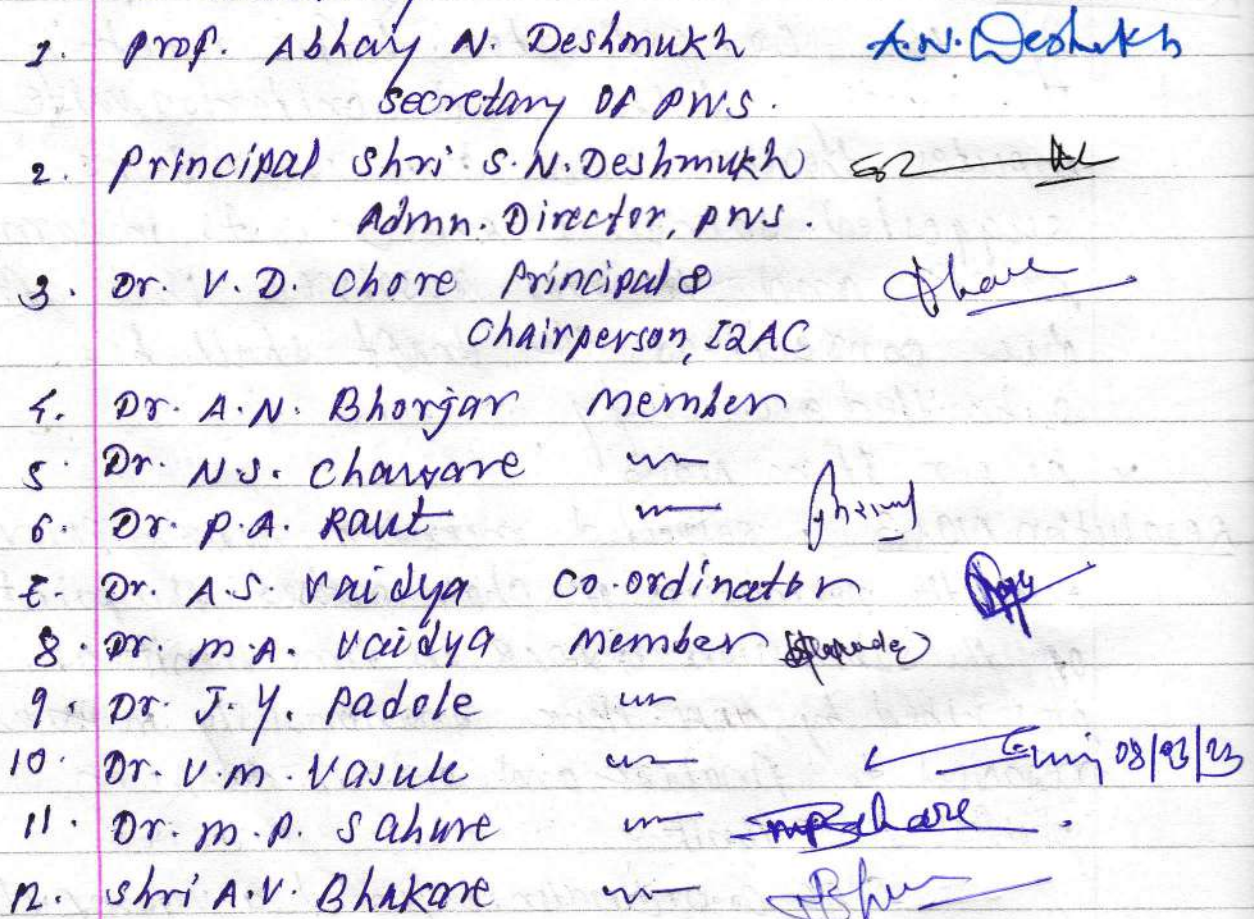 1. Prof. Abhay N. Deshmukh A.N. Deshmukh
Secretary Of PWS.
2. Principal Shri. S.N. Deshmukh
Admn. Director, PWS.
3. Dr. V.D. Chore Principal &
Chairperson, IQAC
4. Dr. A.N. Bhorjar Member
5. Dr. N.S. Chaware
6. Dr. P.A. Raut
7. Dr. A.S. Vaidya Co-ordinator
8. Dr. M.A. Vaidya Member
9. Dr. J.Y. Padole
10. Dr. V.M. Vasule
11. Dr. M.P. Sahure
12. Shri A.V. Bhakare